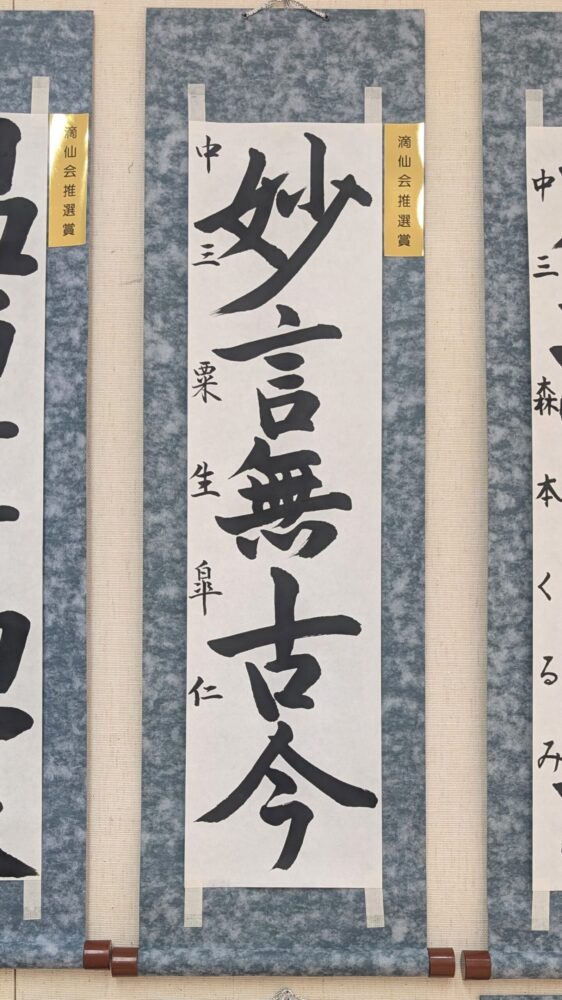 滴仙会推選賞
妙言無古今
中三 粟生皐仁
滴仙会推選賞
中三 森本くるみ